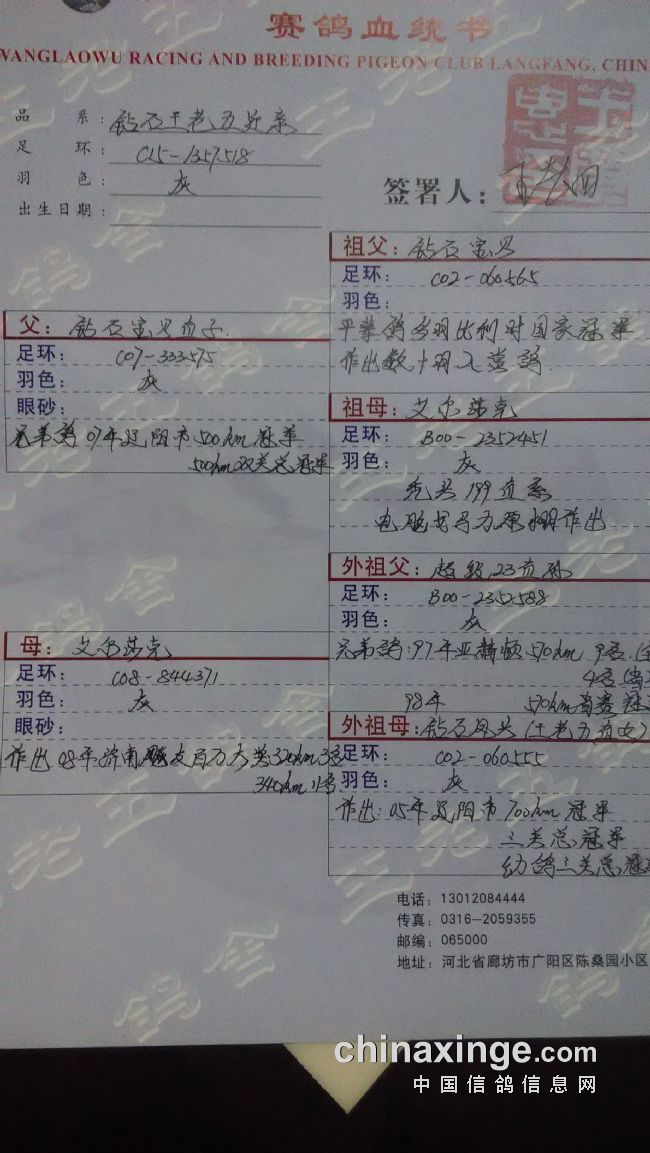 赛鸽血统书
WANGLAOWU RACING AND BREEDING PIGEON CLUB LANGFANG, CHIN
品系：钻石王老五近亲
足环：C15-1357518
羽色：灰
出生日期：
签署人：
父：钻石宝贝直子
足环：C07-333575
羽色：灰
眼砂：
兄弟鸽 07年辽阳市500km冠军
500km双关总冠军
母：艾尔莎克
足环：C08-844371
羽色：灰
眼砂：
作出08年济南 友百万大奖320km3名
340km11名
祖父：钻石宝贝
足环：C02-060565
羽色：
平辈鸽多羽比利时国家冠军
作出数十羽入赏鸽
祖母：艾尔莎克
足环：B00-2352451
羽色：灰
199直系
作出
外祖父：超级23直孙
足环：B00-2352588
羽色：灰
兄弟鸽：97年亚精顿570km 9名
4名
98年 570km省赛冠
外祖母：钻石凤头（王老五直女）
足环：C02-060555
羽色：灰
作出：05年辽阳市700km冠军
三关总冠军
幼鸽三关总冠
电话：13012084444
传真：0316-2059355
邮编：065000
地址：河北省廊坊市广阳区陈桑园小区
王老五鸽舍
chinaxinge.com
中国信鸽信息网